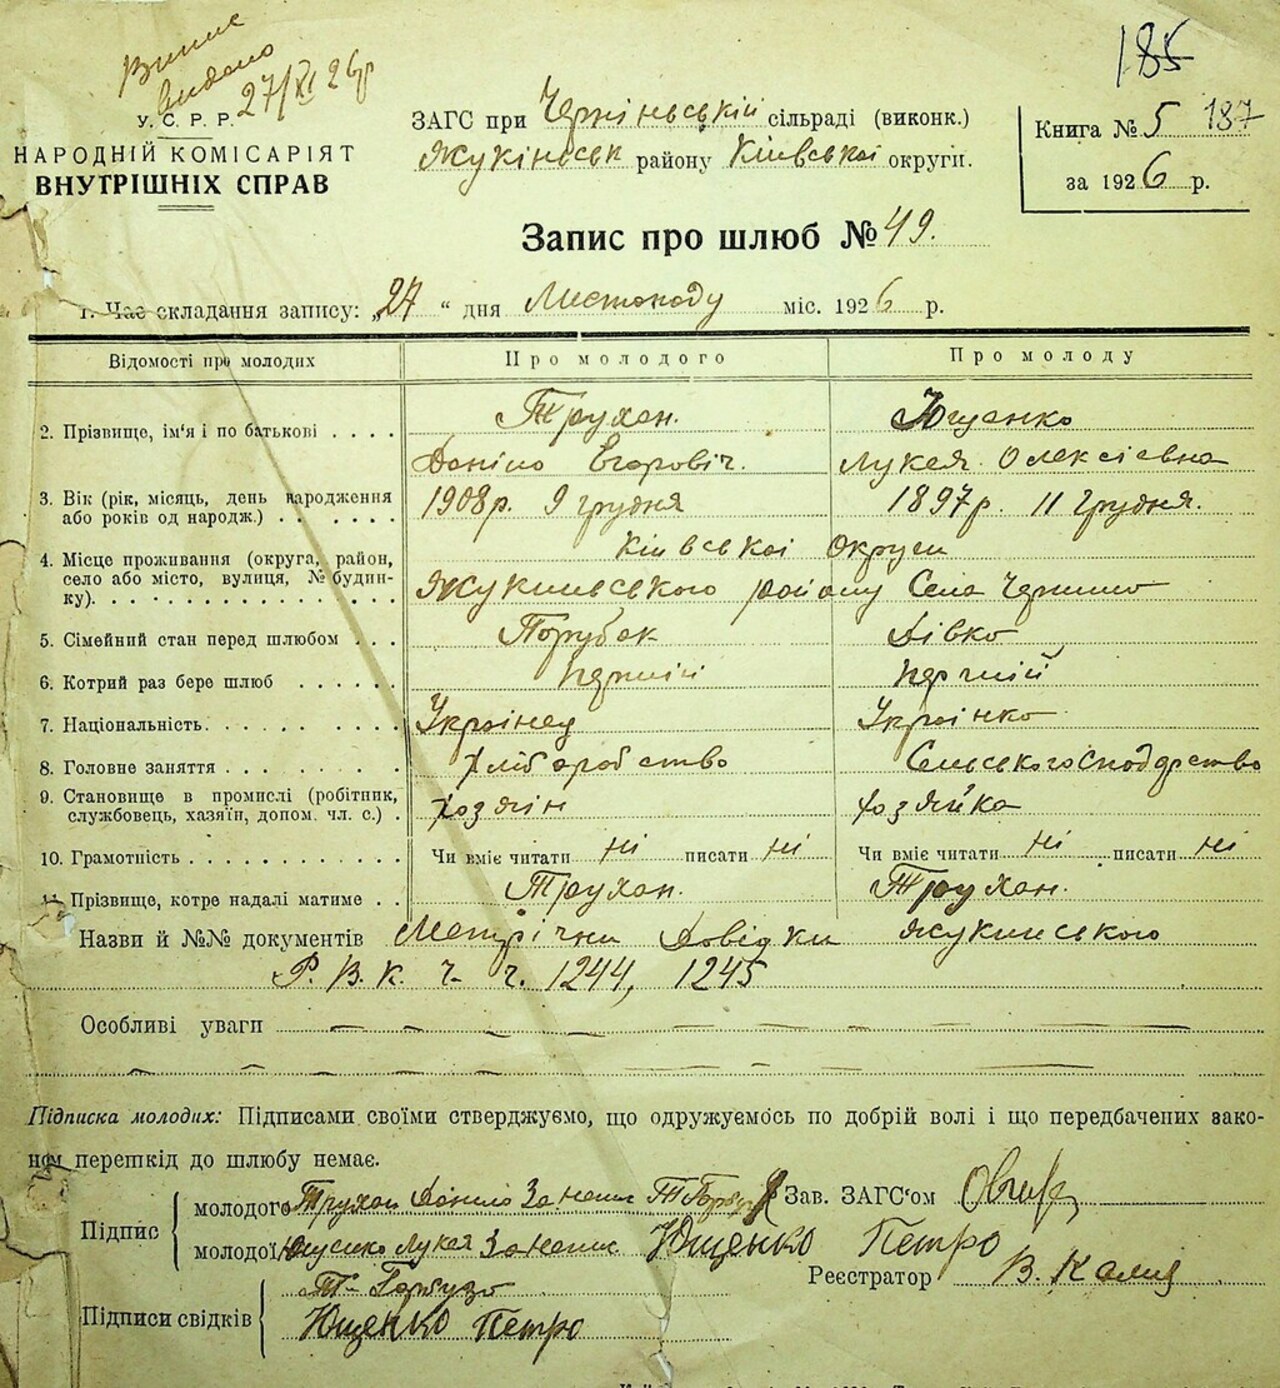 Випис
видано
27/XI 26р
185
У. С. Р. Р.
НАРОДНІЙ КОМІСАРІЯТ
ВНУТРІШНІХ СПРАВ
ЗАГС при Черніньській сільраді (виконк.)
Жукіньськ району Київської округи.
Книга № 5 187
за 1926 р.
Запис про шлюб № 49.
1. Час складання запису: „27“ дня Листопаду міс. 1926 р.
Відомості про молодих Про молодого Про молоду
2. Прізвище, ім'я і по батькові Трухан. Ющенко
Даніло Егоровіч. Лукея Олексіевна
3. Вік (рік, місяць, день народження або років од народж.) 1908р. 9 грудня 1897р. 11 Грудня.
4. Місце проживання (округа, район, село або місто, вулиця, № будинку). Київської Округи
Жукинського району Села Чернино
5. Сімейний стан перед шлюбом Парубок Дівка
6. Котрий раз бере шлюб Перший Перший
7. Національність Українец Українка
8. Головне заняття Хліборобство Сільськогосподарство
9. Становище в промислі (робітник, службовець, хазяїн, допом. чл. с.) Хозяін Хозяйка
10. Грамотність Чи вміє читати ні писати ні Чи вміє читати ні писати ні
11. Прізвище, котре надалі матиме Трухан. Трухан.
Назви й №№ документів Метрічни Довідки Жукинського
Р. В. К. ч. ч. 1244, 1245
Особливі уваги
Підписка молодих: Підписами своїми стверджуємо, що одружуємось по добрій волі і що передбачених зако-
ном перешкід до шлюбу немає.
Підпис
молодого Трухан Даніло За непис Зав. ЗАГС'ом
молодої Ющенко Лукея За непис Ющенко Петро
Реєстратор В.
Підписи свідків
Гарбузо
Ющенко Петро